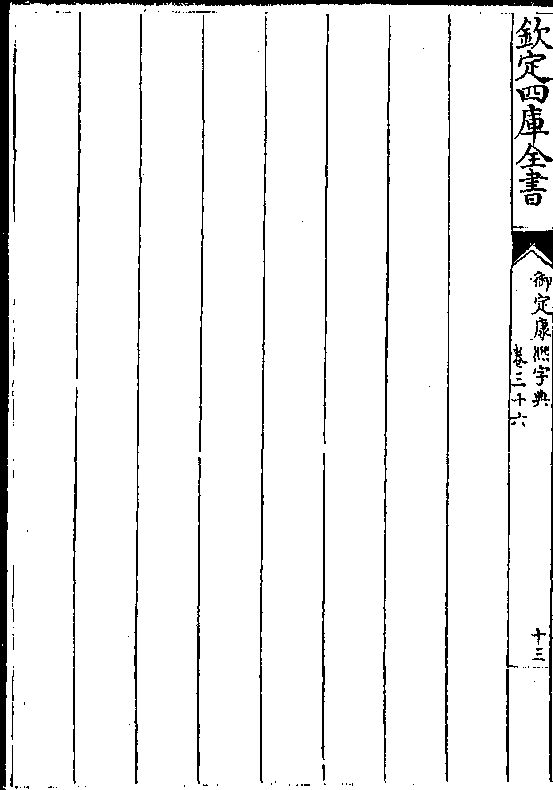 欽定四庫全書
御定康熙字典
卷三十六
十三